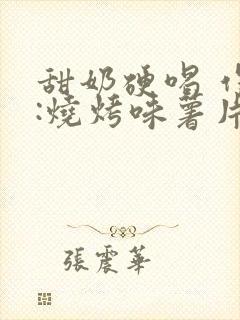 甜奶硬唱
:燒烤味薯片
張震華